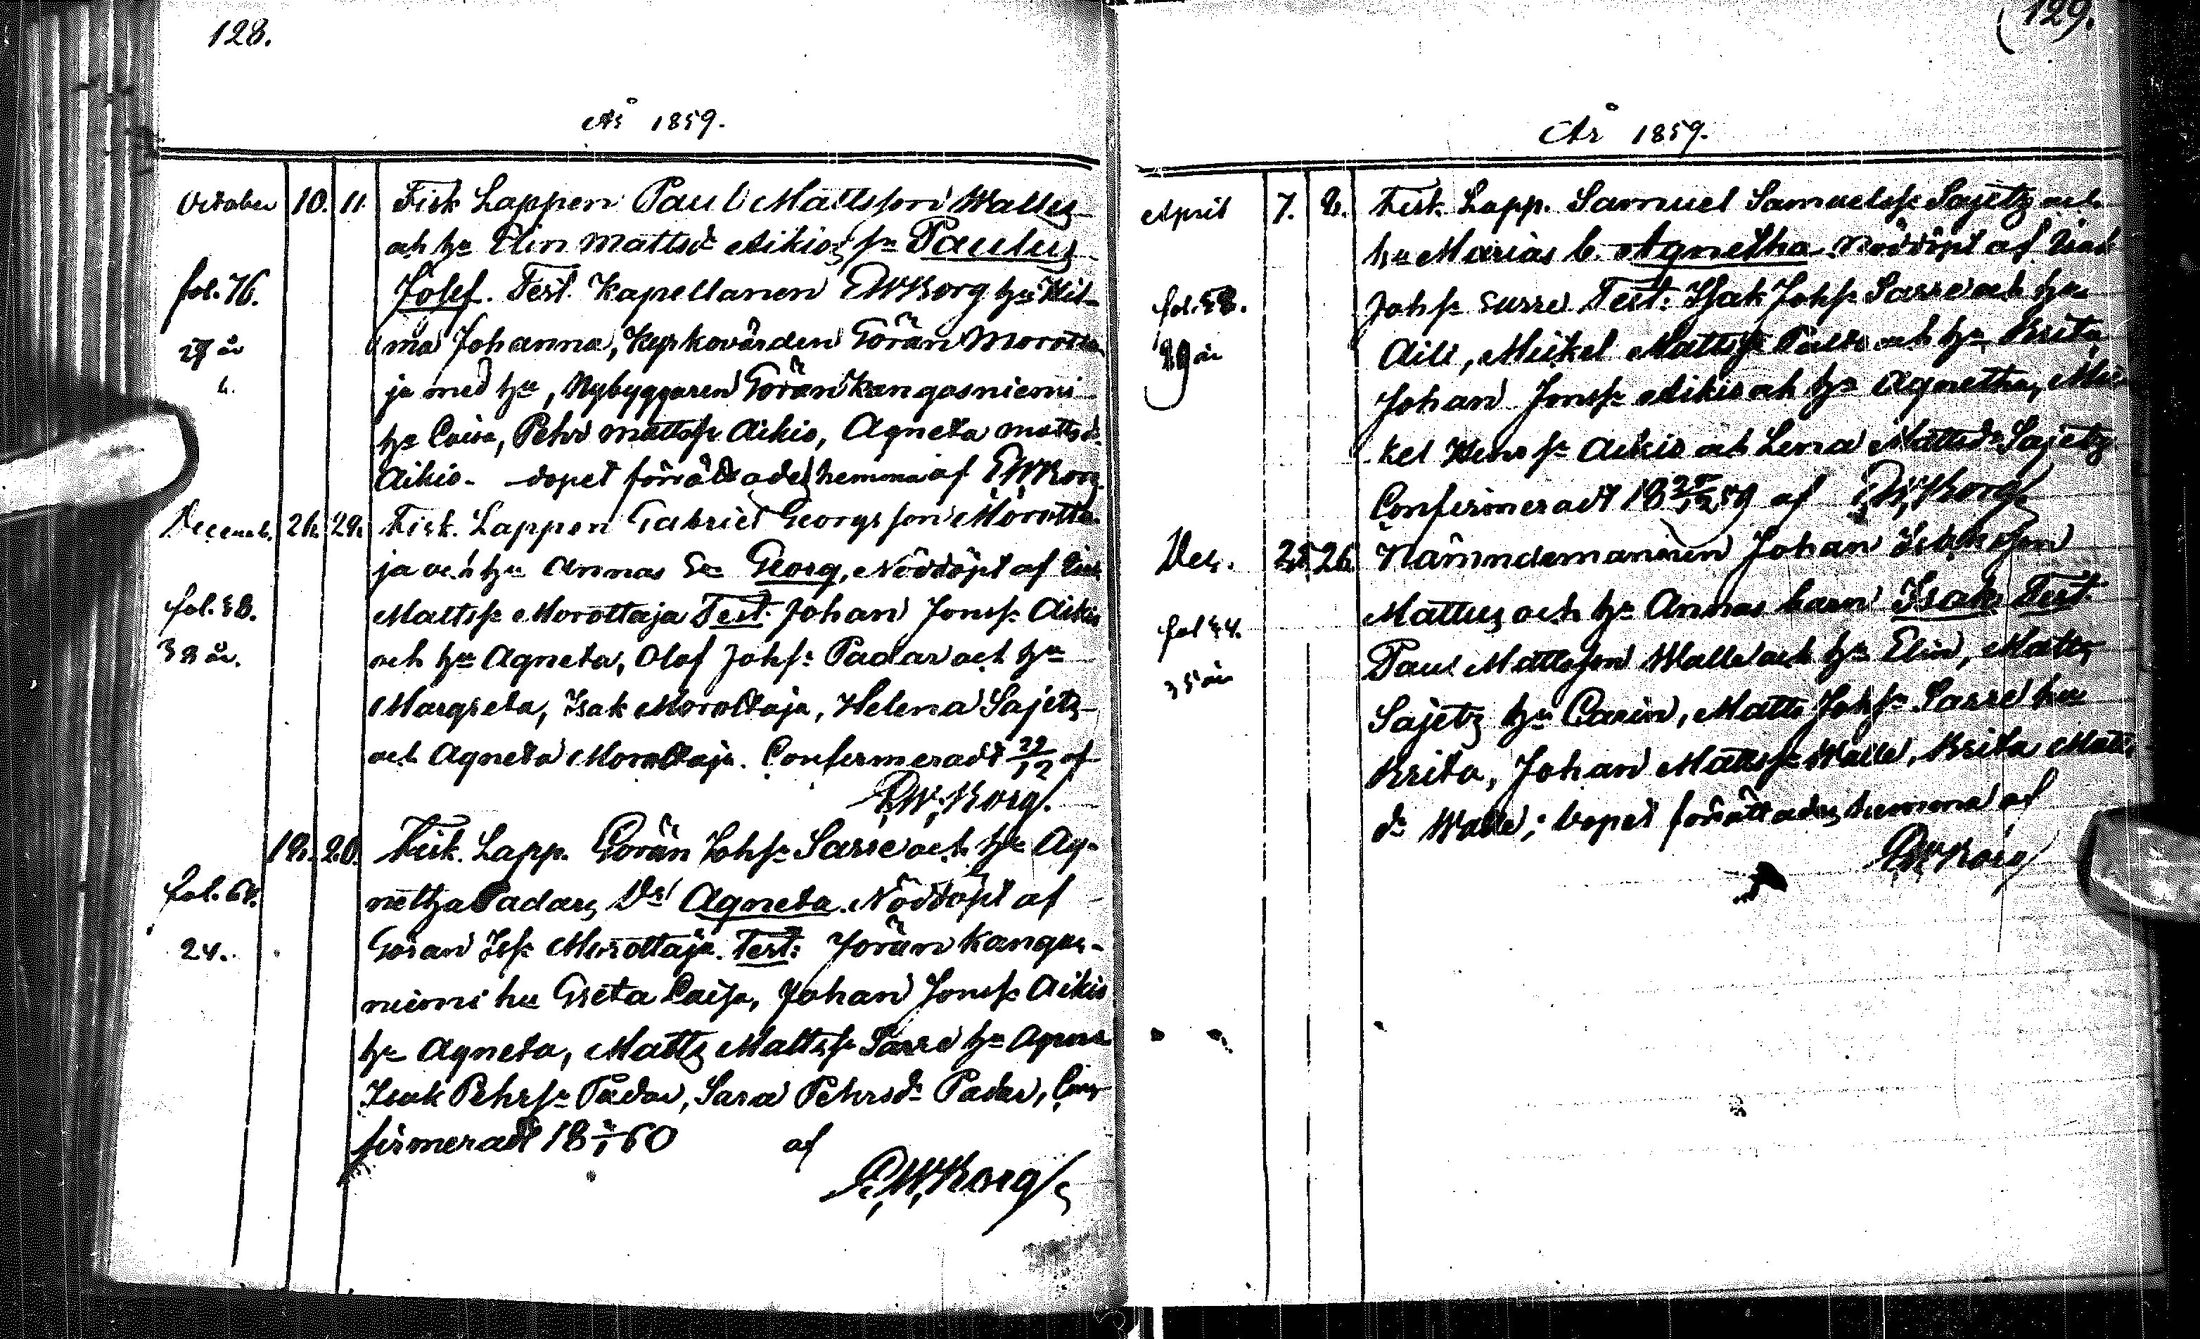 128.
År 1859.
October 10. 11. Fisk Lappen Paul Mattsson Walle
och hu Elin Mattsd: Aikios sn Paulus
fol. 76. Josef. Test. Kapellanen EWBorg hu Wil-
ma Johanna, Kyrkovärden Görän Morotta-
ja med hu, Nybyggaren Görän Kangasniemi
hu Caisa, Pehr Mattss: Aikio, Agneta Mattsd:
Aikio. dopet förrättades hemma af EWBorg.
Decemb. 26. 29. Fisk. Lappen Gabriel Georgsson Morotta-
ja och hu Annas Sn Georg, Nöddöpt af
fol. 58. Mattss: Morottaja Test: Johan Jonss: Aikio
38 år. och hu Agneta, Olof Johss: Padar och hu
Margreta, Isak Morottaja, Helena Sajets
och Agneta Morottaja. Confirmeradt 29/12 af
E.W.Borg.
18. 20. Fisk. Lapp. Görän Johss: Sarre och hu Ag-
fol. 64. netha Padars Dr Agneta. Nöddöpt af
24. Göran Morottaja. Test: Jörän Kangas-
niemi hu Greta Caisa, Johan Jonss: Aikio
hu Agneta, Matts Mattss: Sarre hu
Isak Pehrss: Padar, Sara Pehrsd: Padar, Con-
firmeradt 18 60 af
E.W.Borg
129.
År 1859.
April 7. 8. Fisk. Lapp. Samuel Samuelss: Sajetz och
hu Marias b. Agnetha Nöddöpt af Isak
fol. 58. Johss: Sarre Test: Isak Johss: Sarre och hu
29 år Aili, Mickel Mattss: och hu Brita
Johan Jonss: Aikio och hu Agnetha, Mic-
kel Aikio och Lena Mattsd: Sajetz
Confirmeradt 59 af E.W.Borg
Dec. 25. 26. Nämndemannen Johan
Mattus och hu Annas barn Isak Test
35 år Paul Mattsson Walle och hu Elin, Matts
Sajetz hu Carin, Matts Johss: Sarre hu
Brita, Johan Mattss: Walle, Brita Matts-
dr Walle; Dopet förrättades hemma af
EWBorg